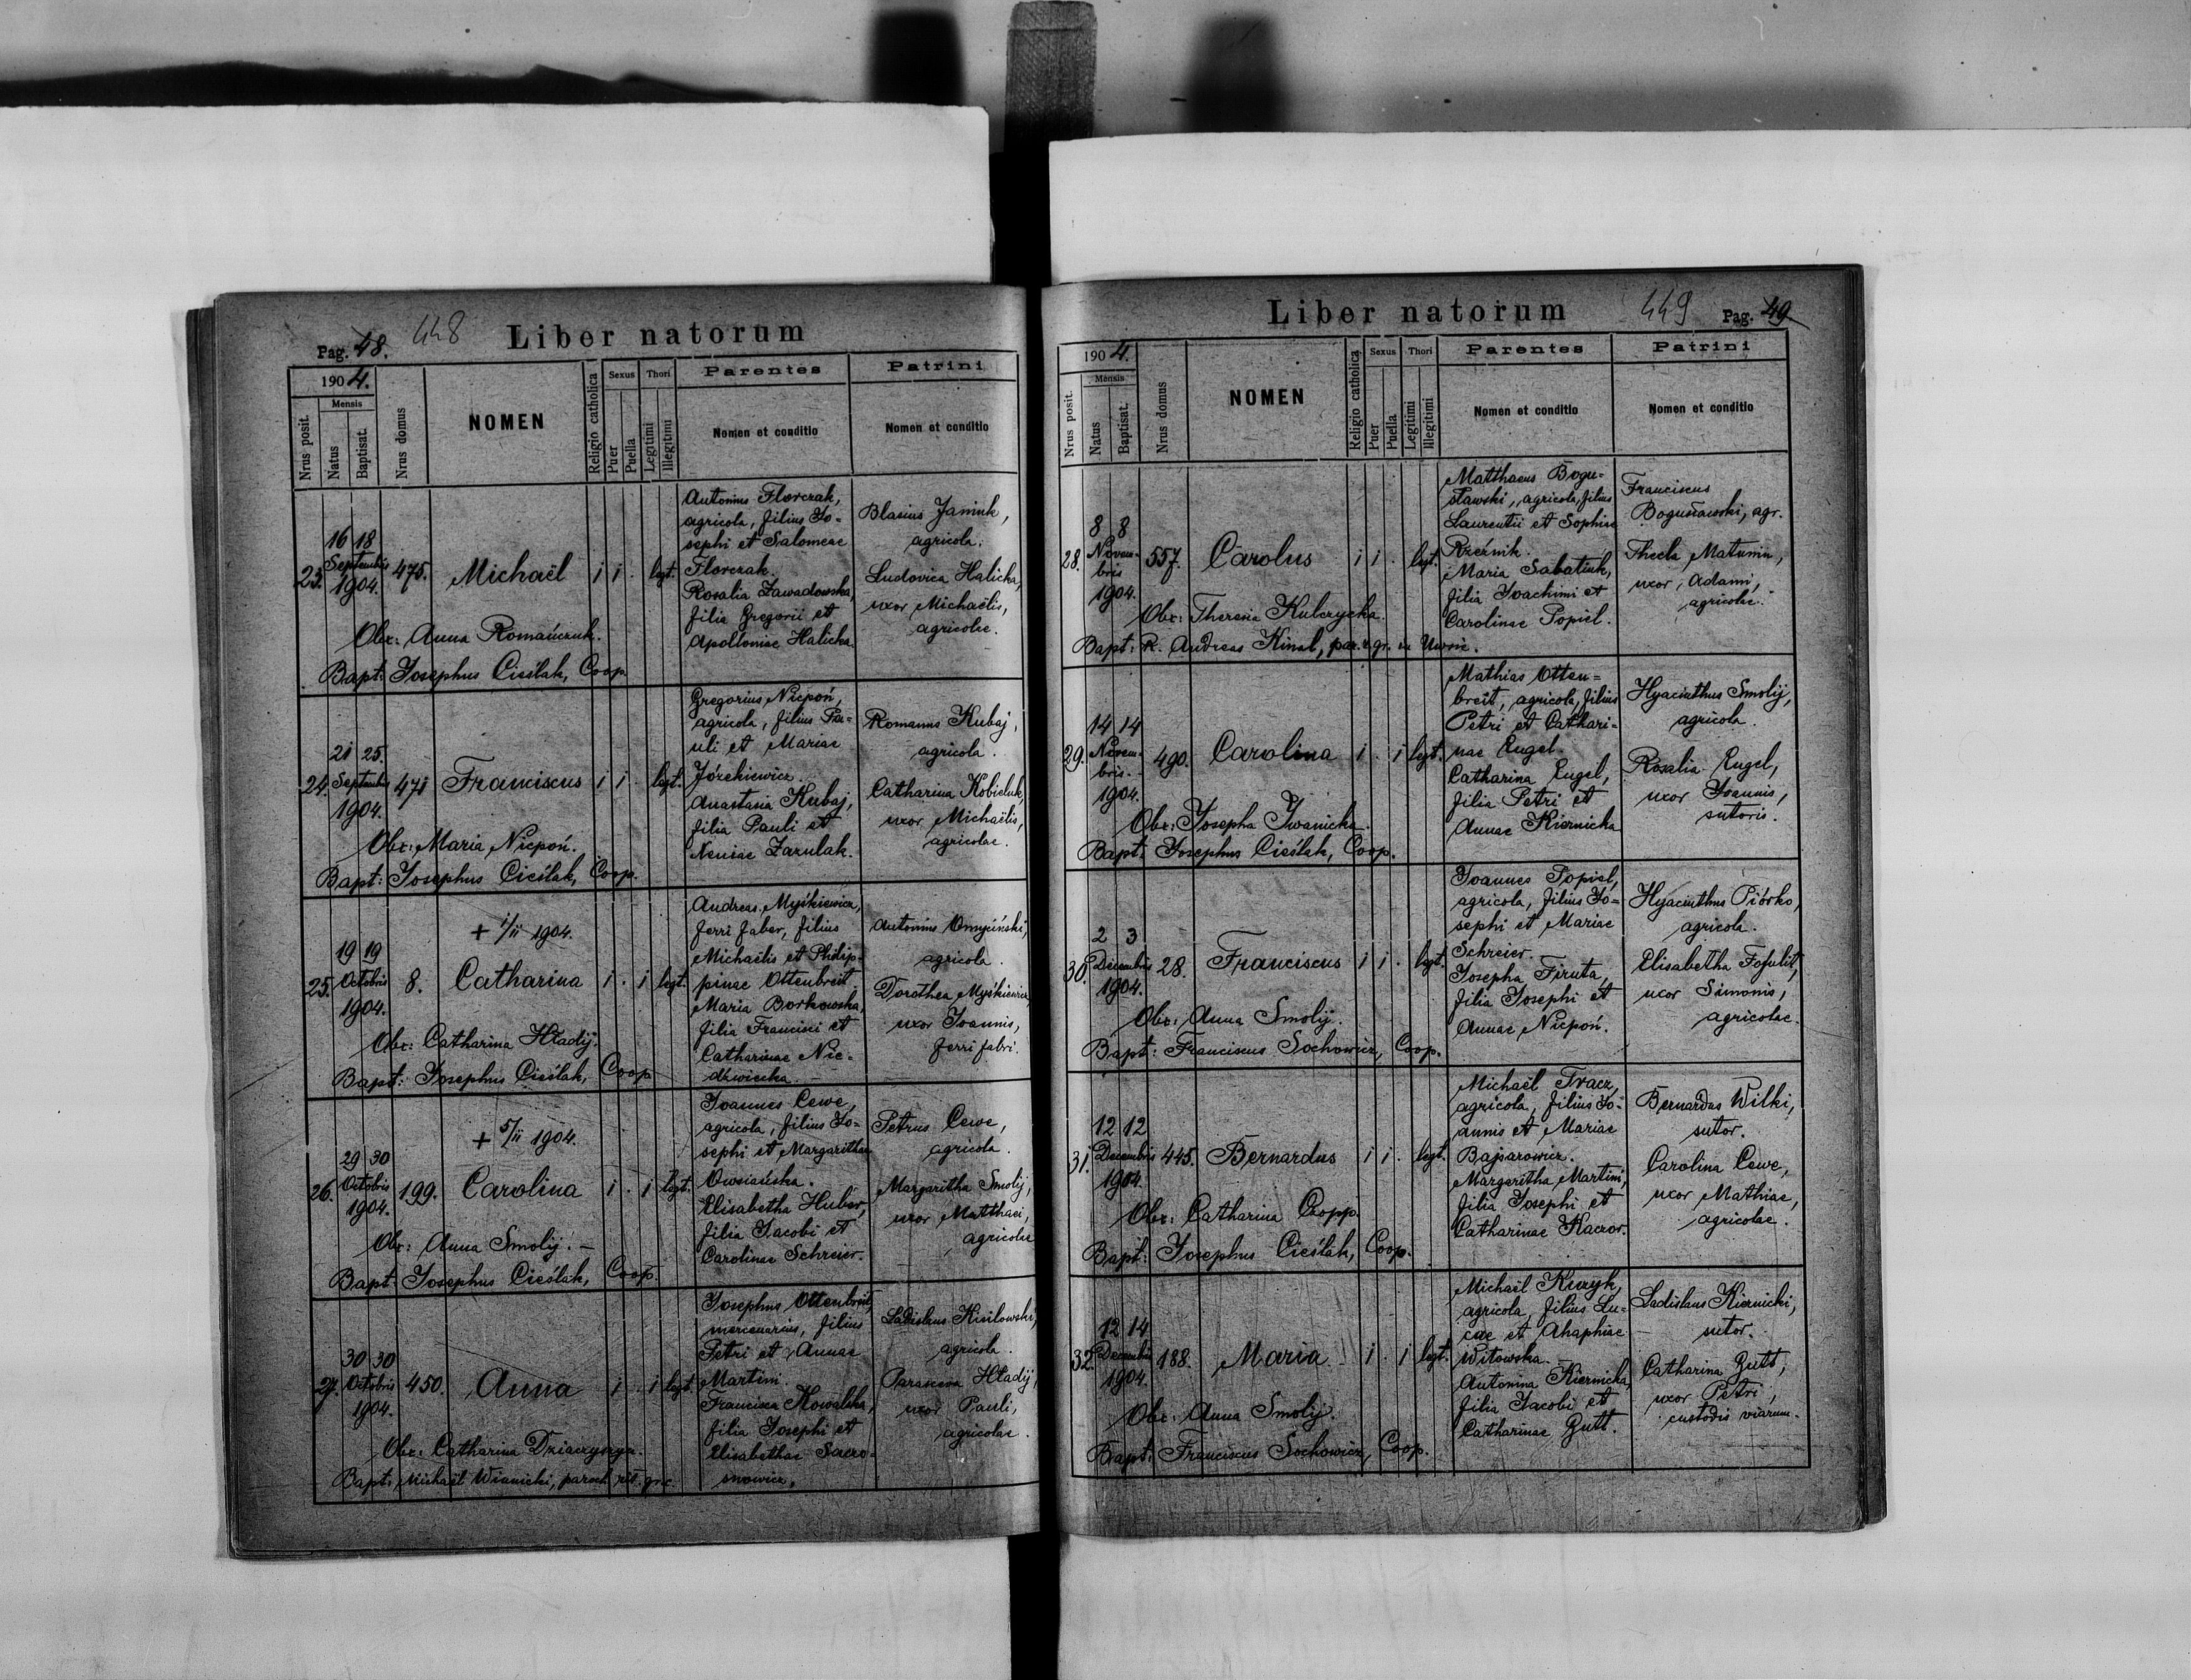 Pag. 48.
448
Liber natorum
1904.
Nrus posit.
Mensis
Natus
Baptisat.
Nrus domus
NOMEN
Religio catholica
Sexus
Puer
Puella
Thori
Legitimi
Illegitimi
Parentes
Nomen et conditio
Patrini
Nomen et conditio
23.
16 18
Septembris
1904.
475.
Michaël
i i . legt.
Antonius Florczak,
agricola, filius Jo-
sephi et Salomeae
Florczak.
Rosalia Zawadowska,
filia Gregorii et
Apolloniae Halicka.
Blasius Janiuk,
agricola.
Ludovica Halicka,
uxor Michaëlis,
agricolae.
Obx: Anna Romańczuk.
Bapt: Josephus Cieślak, Coop.
24.
21 25.
Septembris
1904.
471
Franciscus
i i . legt.
Gregorius Niepoń,
agricola, filius Pa-
uli et Mariae
Józekiewicz.
Anastasia Kubaj,
filia Pauli et
Neniae Zazulak.
Romanus Kubaj,
agricola.
Catharina Kobieluk,
uxor Michaëlis,
agricolae.
Obx: Maria Niepoń.
Bapt: Josephus Cieślak, Coop.
25.
19 19
Octobris
1904.
8.
+ 1/11 1904.
Catharina
i . i legt.
Andreas Myśkiewicz,
ferri faber, filius
Michaëlis et Philip-
pinae Ottenbreit.
Maria Borkowska,
filia Francisci et
Catharinae Nie-
dźwiecka.
Antonius
agricola.
Dorothea Myśkiewicz,
uxor Joannis,
ferri fabri.
Obx: Catharina Hładij.
Bapt: Josephus Cieślak, Coop.
26.
29 30
Octobris
1904.
199.
+ 5/11 1904.
Carolina
i . i legt.
Joannes Cewe,
agricola, filius Jo-
sephi et Margarithae
Owsiańska.
Elisabetha Huber,
filia Jacobi et
Carolinae Schreier.
Petrus Cewe,
agricola.
Margaritha Smolij,
uxor Matthaei,
agricolae
Obx: Anna Smolij. –
Bapt: Josephus Cieślak, Coop.
27.
30 30
Octobris
1904.
450.
Anna
i . i legt.
Josephus Ottenbreit,
mercenarius, filius
Petri et Annae
Martini.
Francisca Kowalska,
filia Josephi et
Elisabethae Sacro-
snowicz.
Ladislaus Kisilowski,
agricola.
Parasceva Hładij,
uxor Pauli,
agricolae.
Obx: Catharina Dziaczyszyn.
Bapt: Michaël Winnicki, paroch. rit. gr. c.
Liber natorum
449
Pag. 49
1904.
Nrus posit.
Mensis
Natus
Baptisat.
Nrus domus
NOMEN
Religio catholica
Sexus
Puer
Puella
Thori
Legitimi
Illegitimi
Parentes
Nomen et conditio
Patrini
Nomen et conditio
28.
8 8
Novem-
bris
1904.
557.
Carolus
i i . legt.
Matthaeus Bogu-
sławski, agricola, filius
Laurentii et Sophiae
Rzeźnik.
Maria Sabatiuk,
filia Joachimi et
Carolinae Popiel.
Franciscus
Bogusławski, agr.
Thecla Matunin,
uxor Adami,
agricolae.
Obx: Theresia Kulczycka.
Bapt: R. Andreas Kinal, par. r. gr. in
29.
14 14
Novem-
bris.
1904.
490.
Carolina
i . i legt.
Mathias Otten-
breit, agricola, filius
Petri et Cathari-
nae Engel.
Catharina Engel,
filia Petri et
Annae Kiernicka
Hyacinthus Smolij,
agricola.
Rosalia Engel,
uxor Joannis,
sutoris.
Obx: Josepha Iwanicka.
Bapt: Josephus Cieślak, Coop.
30.
2 3
Decembris
1904.
28.
Franciscus
i i . legt.
Joannes Popiel,
agricola, filius Jo-
sephi et Mariae
Schreier.
Josepha Firuta,
filia Josephi et
Annae Niepoń.
Hyacinthus Piórko,
agricola.
Elisabetha Fofulit,
uxor Simonis,
agricolae.
Obx: Anna Smolij.
Bapt: Franciscus Sochowicz, Coop.
31.
12 12
Decembris
1904.
445.
Bernardus
i i . legt.
Michaël Tracz,
agricola, filius Jo-
annis et Mariae
Bajzarowicz.
Margaritha Martini,
filia Josephi et
Catharinae Kaczor.
Bernardus Wilki,
sutor.
Carolina Cewe,
uxor Mathiae,
agricolae.
Obx: Catharina Czopp.
Bapt: Josephus Cieślak, Coop.
32.
12 14
Decembris
1904.
188.
Maria
i . i legt.
Michaël Kuzyk,
agricola, filius Lu-
cae et Ahaphiae
Witowska.
Antonina Kiernicka,
filia Jacobi et
Catharinae Gutt.
Ladislaus Kiernicki,
sutor.
Catharina Gutt,
uxor Petri,
custodis viarum.
Obx: Anna Smolij.
Bapt: Franciscus Sochowicz, Coop.